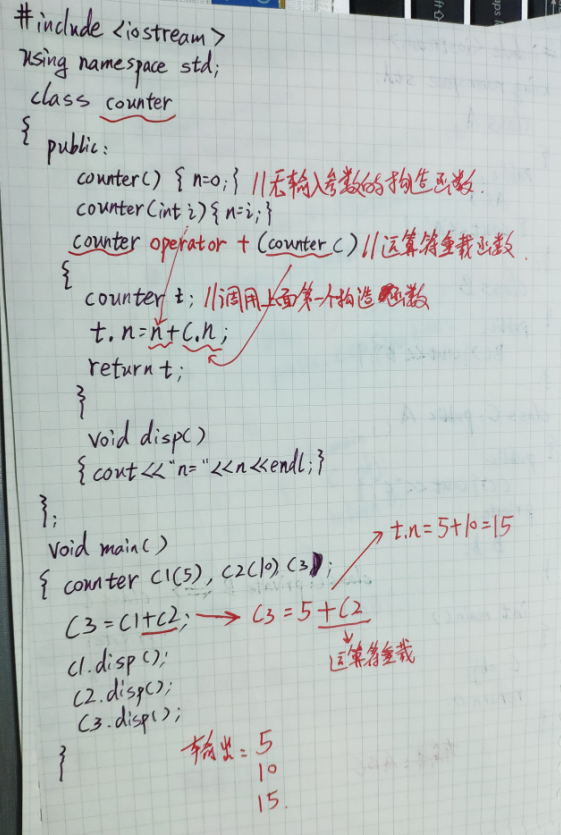 #include <iostream>
using namespace std;
class counter
{
public:
counter() { n=0; } //无输入参数的构造函数.
counter(int i) { n=i; }
counter operator + (counter c) //运算符重载函数.
{
counter t; //调用上面第一个构造函数
t.n=n+c.n;
return t;
}
void disp()
{ cout<<"n="<<n<<endl; }
};
void main()
t.n=5+10=15
{ counter C1(5), C2(10), C3;
C3=C1+C2; → C3=5+C2
运算符重载
c1.disp();
C2.disp();
C3.disp();
}
输出=5
10
15.